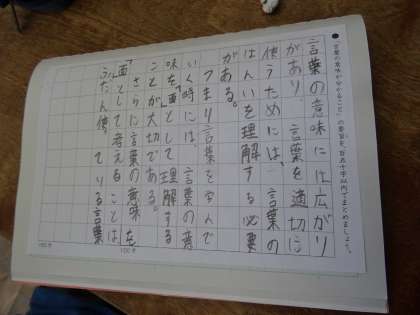 ●「言葉の意味が分かること」の要旨を、百五十字以内でまとめましょう。
言葉の意味には広がり
があり、言葉を適切に
使うためには、言葉の
はんいを理解する必要
がある。
つまり言葉を学んで
いく時には、言葉の意
味を「面」として理解する
ことが大切である。
さらに言葉の意味を
「面」として考えることは、
ふだん使っている言葉
150字
100字